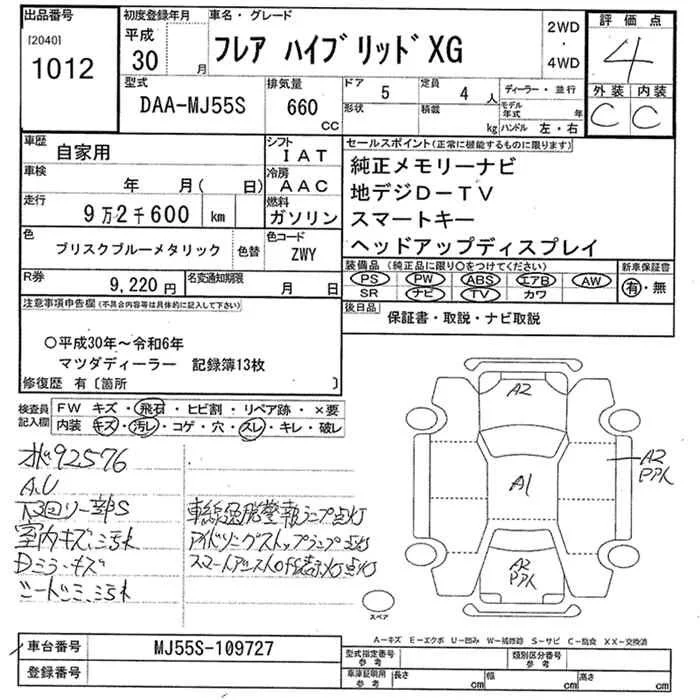 出品番号
[2040]
1012
初度登録年月
平成
30 月
車名・グレード
フレア ハイブリッドXG
2WD
・
4WD
評価点
4
外装 内装
C C
型式
DAA-MJ55S
排気量
660 cc
ドア 5
形状
定員 4 人
積載 kg
ディーラー・並行
モデル年式 年
ハンドル 左・右
車歴
自家用
シフト
IAT
車検
年 月( 日)
冷房
AAC
走行
9万2千600 km
燃料
ガソリン
色
ブリスクブルーメタリック
色替
色コード
ZWY
R券
9,220円
名変通知期限
月 日
セールスポイント(正常に機能するものに限ります)
純正メモリーナビ
地デジD-TV
スマートキー
ヘッドアップディスプレイ
装備品 (純正品に限り○をつけてください)
PS PW ABS エアB AW
SR ナビ TV カワ
新車保証書
有・無
後日品
保証書・取説・ナビ取説
注意事項申告欄(不具合内容等は具体的に記入して下さい)
○平成30年~令和6年
マツダディーラー 記録簿13枚
修復歴 有〔箇所 〕
検査員記入欄
FW キズ・飛石・ヒビ割・リペア跡・×要
内装 キズ・汚レ・コゲ・穴・スレ・キレ・破レ
92576
A.U
下回り一部S
室内キズ、汚れ
Dミラーキズ
シートシミ、汚れ
車線逸脱警報ランプ点灯
アイドリングストップランプ点灯
A2
A1
A2
PPハ
A2
PPハ
スペア
A-キズ E-エクボ U-凹み W-補修跡 S-サビ C-腐食 XX-交換済
車台番号
MJ55S-109727
登録番号
型式指定番号
参考
類別区分番号
参考
車庫証明用
参考
長さ cm
幅 cm
高さ cm